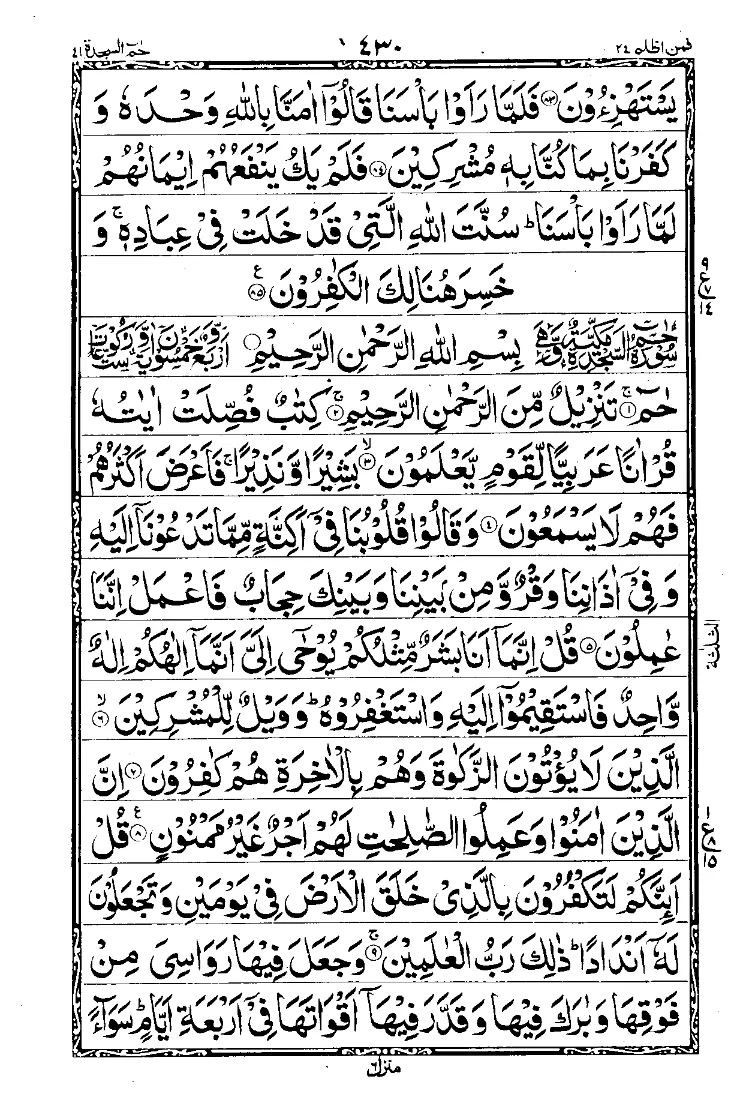 فمن اظلم ٢٤ ٤٣٠ حٰمٓ السجدة ٤١
يَسْتَهْزِءُوْنَ ﴿٨٣﴾ فَلَمَّا رَاَوْا بَاْسَنَا قَالُوْٓا اٰمَنَّا بِاللّٰهِ وَحْدَهٗ وَ
كَفَرْنَا بِمَا كُنَّا بِهٖ مُشْرِكِيْنَ ﴿٨٤﴾ فَلَمْ يَكُ يَنْفَعُهُمْ اِيْمَانُهُمْ
لَمَّا رَاَوْا بَاْسَنَا ؕ سُنَّتَ اللّٰهِ الَّتِيْ قَدْ خَلَتْ فِيْ عِبَادِهٖ ۚ وَ
خَسِرَ هُنَالِكَ الْكٰفِرُوْنَ ﴿٨٥﴾ ع
٩ ع ٧ ١٤
سُوْرَةُ حٰمٓ السَّجْدَةِ مَكِّيَّةٌ وَّهِيَ بِسْمِ اللّٰهِ الرَّحْمٰنِ الرَّحِيْمِ اَرْبَعٌ وَّخَمْسُوْنَ اٰيَةً وَّسِتُّ رُكُوْعَاتٍ
حٰمٓ ۚ ﴿١﴾ تَنْزِيْلٌ مِّنَ الرَّحْمٰنِ الرَّحِيْمِ ۚ ﴿٢﴾ كِتٰبٌ فُصِّلَتْ اٰيٰتُهٗ
قُرْاٰنًا عَرَبِيًّا لِّقَوْمٍ يَّعْلَمُوْنَ ۙ ﴿٣﴾ بَشِيْرًا وَّنَذِيْرًا ۚ فَاَعْرَضَ اَكْثَرُهُمْ
فَهُمْ لَا يَسْمَعُوْنَ ﴿٤﴾ وَقَالُوْا قُلُوْبُنَا فِيْٓ اَكِنَّةٍ مِّمَّا تَدْعُوْنَآ اِلَيْهِ
وَفِيْٓ اٰذَانِنَا وَقْرٌ وَّمِنْۢ بَيْنِنَا وَبَيْنِكَ حِجَابٌ فَاعْمَلْ اِنَّنَا
عٰمِلُوْنَ ﴿٥﴾ قُلْ اِنَّمَآ اَنَا بَشَرٌ مِّثْلُكُمْ يُوْحٰٓى اِلَيَّ اَنَّمَآ اِلٰهُكُمْ اِلٰهٌ
الثلثة
وَّاحِدٌ فَاسْتَقِيْمُوْٓا اِلَيْهِ وَاسْتَغْفِرُوْهُ ؕ وَوَيْلٌ لِّلْمُشْرِكِيْنَ ۙ ﴿٦﴾
الَّذِيْنَ لَا يُؤْتُوْنَ الزَّكٰوةَ وَهُمْ بِالْاٰخِرَةِ هُمْ كٰفِرُوْنَ ﴿٧﴾ اِنَّ
الَّذِيْنَ اٰمَنُوْا وَعَمِلُوا الصّٰلِحٰتِ لَهُمْ اَجْرٌ غَيْرُ مَمْنُوْنٍ ﴿٨﴾ ع قُلْ
١ ع ٨ ١٥
اَئِنَّكُمْ لَتَكْفُرُوْنَ بِالَّذِيْ خَلَقَ الْاَرْضَ فِيْ يَوْمَيْنِ وَتَجْعَلُوْنَ
لَهٗٓ اَنْدَادًا ؕ ذٰلِكَ رَبُّ الْعٰلَمِيْنَ ۚ ﴿٩﴾ وَجَعَلَ فِيْهَا رَوَاسِيَ مِنْ
فَوْقِهَا وَبٰرَكَ فِيْهَا وَقَدَّرَ فِيْهَآ اَقْوَاتَهَا فِيْٓ اَرْبَعَةِ اَيَّامٍ ؕ سَوَآءً
منزل ٦